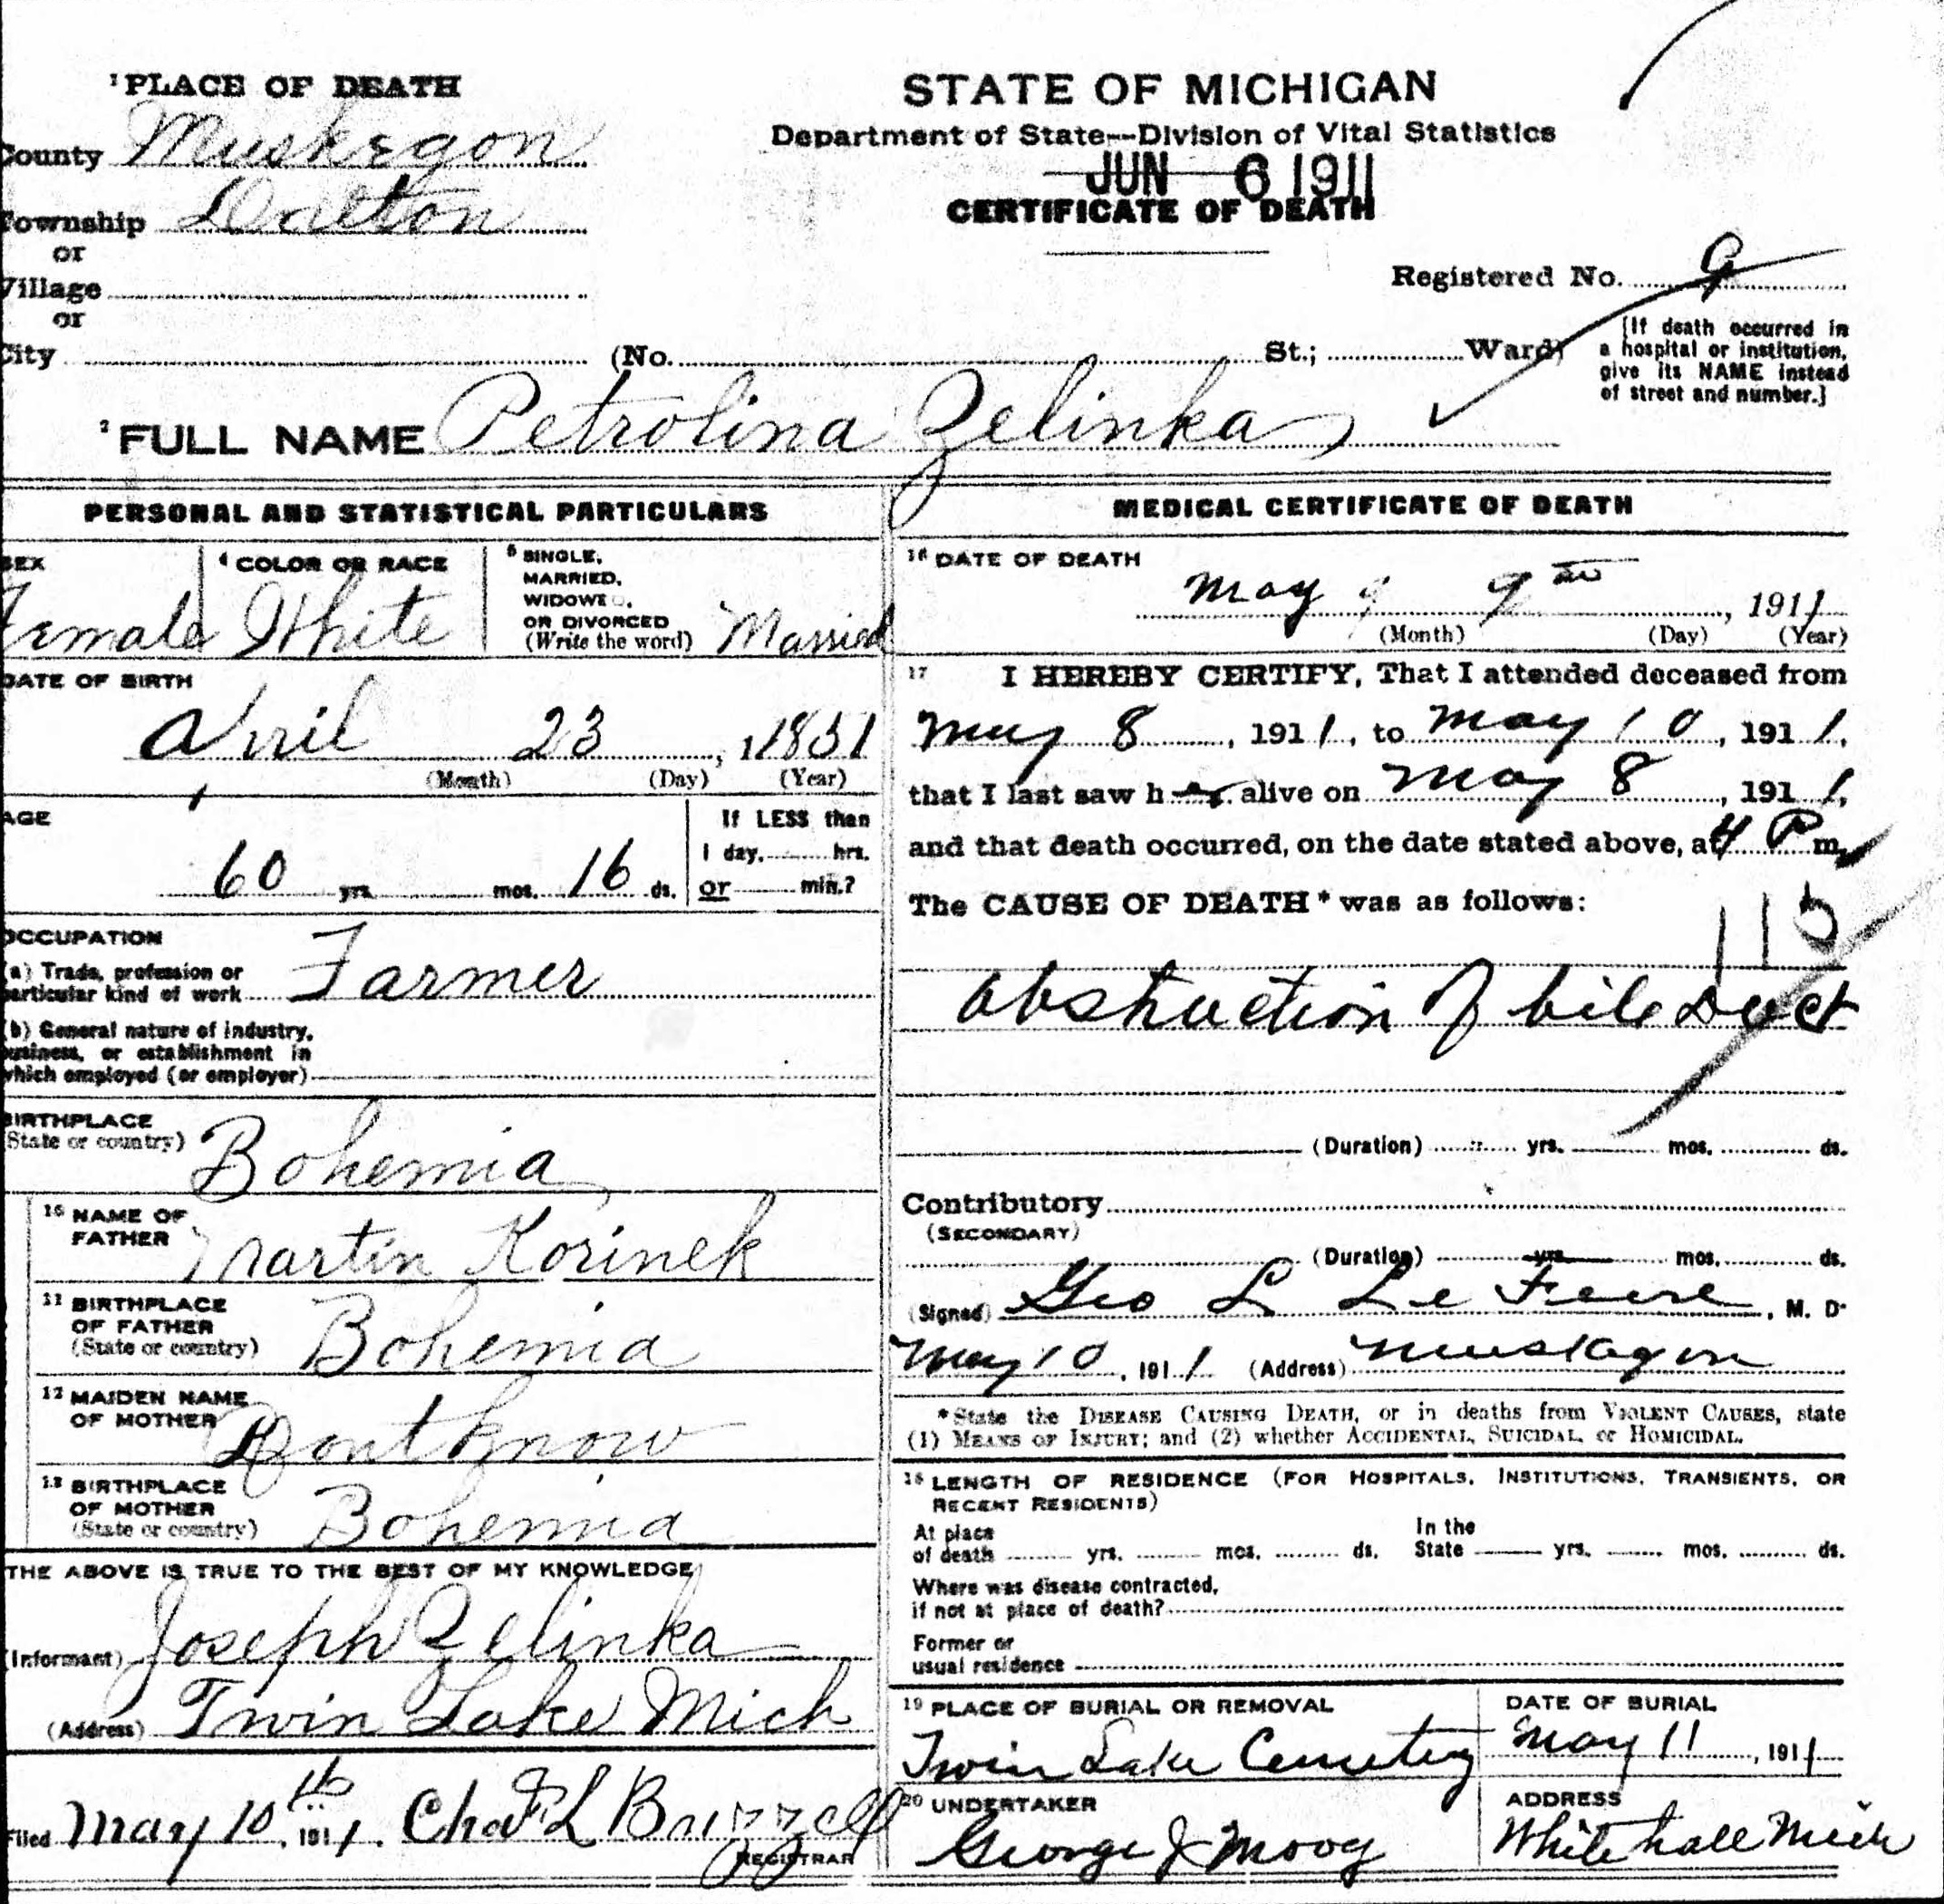 1 PLACE OF DEATH
County Muskegon
Township Dalton
or
Village
or
City (No. St.; Ward)
STATE OF MICHIGAN
Department of State--Division of Vital Statistics
JUN 6 1911
CERTIFICATE OF DEATH
Registered No. 9
[If death occurred in
a hospital or institution,
give its NAME instead
of street and number.]
2 FULL NAME Petrolina Zelinka
PERSONAL AND STATISTICAL PARTICULARS
SEX
Female
4 COLOR OR RACE
White
5 SINGLE,
MARRIED,
WIDOWED,
OR DIVORCED
(Write the word) Married
DATE OF BIRTH
April 23, 1851
(Month) (Day) (Year)
AGE
60 yrs. mos. 16 ds.
If LESS than
1 day, hrs.
or min.?
OCCUPATION
(a) Trade, profession or
particular kind of work Farmer
(b) General nature of industry,
business, or establishment in
which employed (or employer)
BIRTHPLACE
(State or country) Bohemia
10 NAME OF
FATHER Martin Korinek
11 BIRTHPLACE
OF FATHER
(State or country) Bohemia
12 MAIDEN NAME
OF MOTHER Dont know
13 BIRTHPLACE
OF MOTHER
(State or country) Bohemia
THE ABOVE IS TRUE TO THE BEST OF MY KNOWLEDGE
(Informant) Joseph Zelinka
(Address) Twin Lake Mich
Filed May 10th, 1911. Chas F L Buzzell
REGISTRAR
MEDICAL CERTIFICATE OF DEATH
16 DATE OF DEATH
May 9 9th, 1911
(Month) (Day) (Year)
17 I HEREBY CERTIFY, That I attended deceased from
May 8, 1911, to May 10, 1911,
that I last saw her alive on May 8, 1911,
and that death occurred, on the date stated above, at 4 P m.
The CAUSE OF DEATH* was as follows:
115
Obstruction of bile Duct
(Duration) yrs. mos. ds.
Contributory
(SECONDARY)
(Duration) yrs. mos. ds.
(Signed) Geo L Le Fevre, M. D.
May 10, 1911 (Address) Muskegon
*State the DISEASE CAUSING DEATH, or in deaths from VIOLENT CAUSES, state
(1) MEANS OF INJURY; and (2) whether ACCIDENTAL, SUICIDAL, or HOMICIDAL.
18 LENGTH OF RESIDENCE (FOR HOSPITALS, INSTITUTIONS, TRANSIENTS, OR
RECENT RESIDENTS)
At place
of death yrs. mos. ds.
In the
State yrs. mos. ds.
Where was disease contracted,
if not at place of death?
Former or
usual residence
19 PLACE OF BURIAL OR REMOVAL
Twin Lake Cemetery
DATE OF BURIAL
May 11, 1911
20 UNDERTAKER
George J Moog
ADDRESS
Whitehall Mich